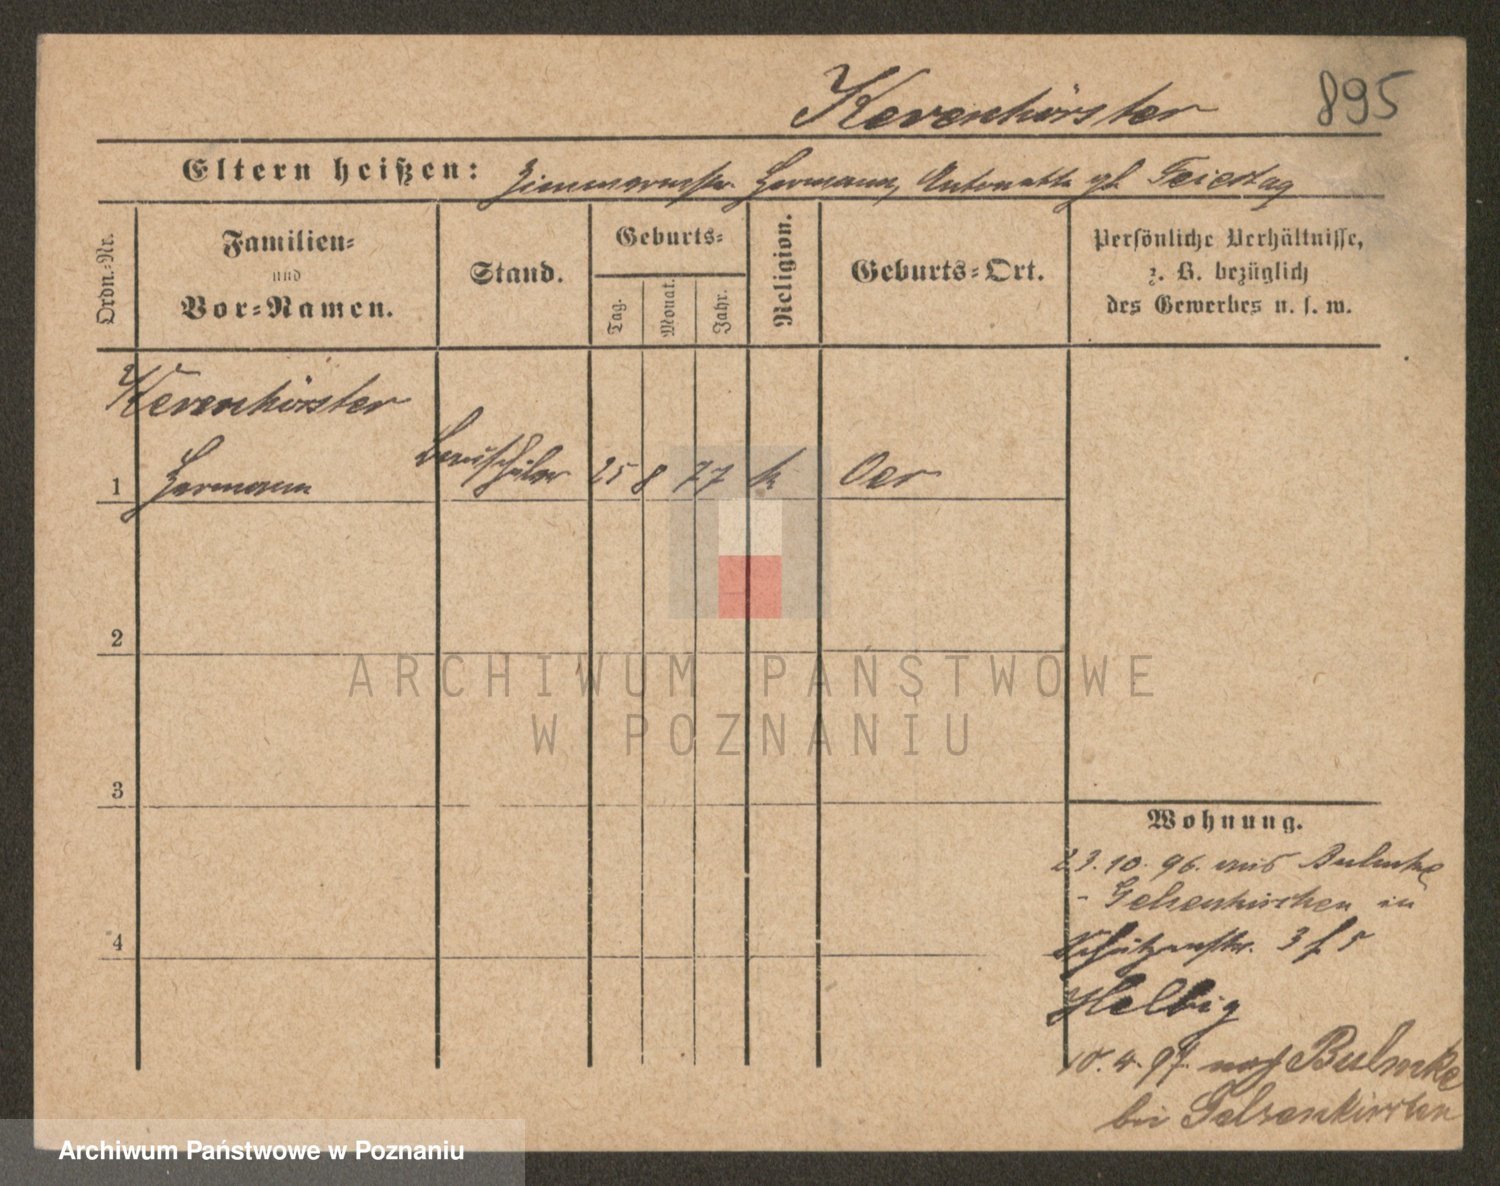 Kevenhörster 895
Eltern heißen: Zimmermstr. Hermann, Antonette gb. Feiertag
Ordn.-Nr.
Familien-
und
Vor-Namen.
Stand.
Geburts-
Tag.
Monat.
Jahr.
Religion.
Geburts-Ort.
Persönliche Verhältnisse,
z. B. bezüglich
des Gewerbes u. s. w.
Kevenhörster
1 Hermann Bauschüler 25 8 77 k Oer
2
3
4
Wohnung.
23.10.96. aus Bulmke
- Gelsenkirchen in
Schützenstr. 3 b
Helbig
10.4.97. nach Bulmke
bei Gelsenkirchen
ARCHIWUM PAŃSTWOWE
W POZNANIU
Archiwum Państwowe w Poznaniu